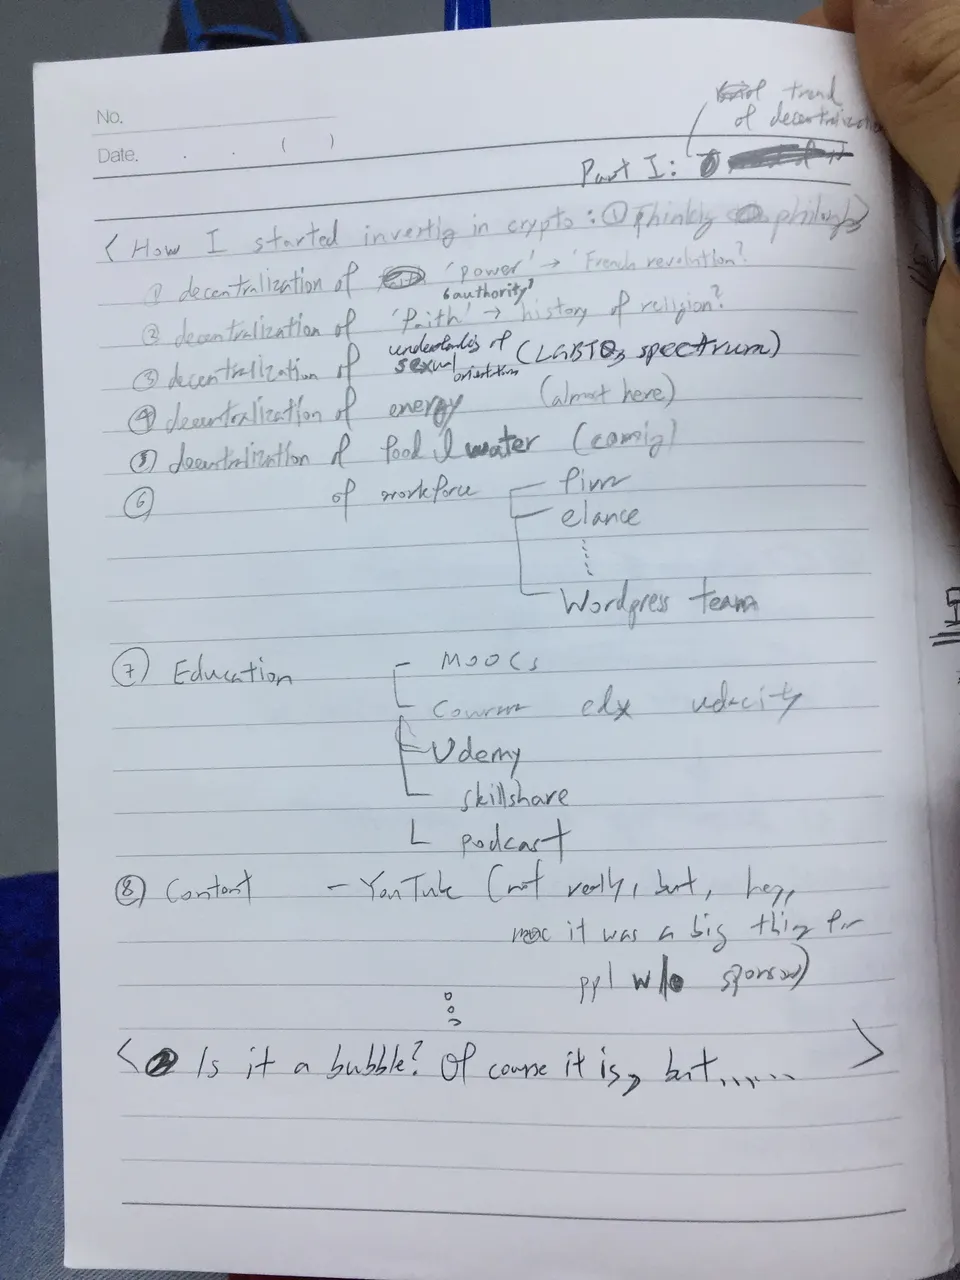 No.
Date. . . ( )
trend
of decentralization
Part I:
< How I started investig in crypto: ① philosphy >
① decentralization of 'power' → 'French revolution?
'authority'
② decentralization of 'faith' → history of religion?
③ decentralization of understandig of sexual orientation (LGBTQ, spectrum)
④ decentralization of energy (almost here)
⑤ decentralization of food & water (comig)
⑥ of workforce
elance
Wordpress team
⑦ Education
MOOCs
edx udacity
Udemy
skillshare
podcast
⑧ Content - YouTube (not really, but, hey,
it was a big thing for
ppl w/o sponsor)
< Is it a bubble? Of course it is, but...... >